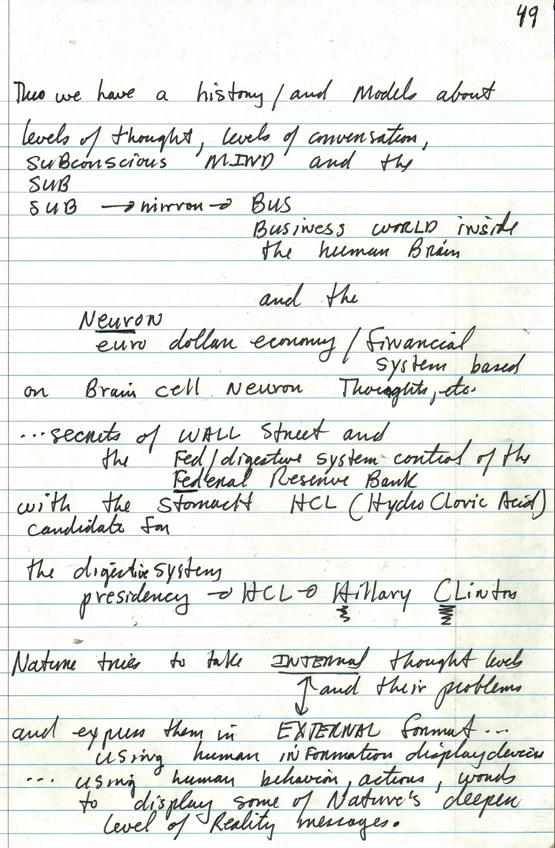 49
Thus we have a history / and Models about
levels of thought, levels of conversation,
SUBconscious MIND and the
SUB
SUB → mirror → BUS
Business WORLD inside
the human Brain
and the
Neuron
euro dollar economy / Financial
system based
on Brain cell Neuron Thoughts, etc.
...secrets of WALL Street and
the Fed/digestive system control of the
Federal Reserve Bank
with the StomacH HCL (Hydro Cloric Acid)
candidate for
the digestive system
presidency → HCL → Hillary CLinton
Nature tries to take INTERNAL thought levels
↕ and their problems
and express them in EXTERNAL format...
using human inFormation display devices
... using human behavior, actions, words
to display some of Nature's deeper
level of Reality messages.